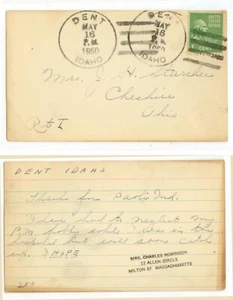 DENT
MAY
16
P.M.
1950
IDAHO
DENT
MAY
16
P.M.
1950
IDAHO
Mrs.
Cheshire
Ohio
R #1
DENT IDAHO
Thanks for Paoli Ind.
I have had to neglect my
P.M. hobby while I was in the
hospital but will soon catch
up. I HOPE
MRS. CHARLES MORRISON
12 ALLEN CIRCLE
MILTON 87 MASSACHUSETTS